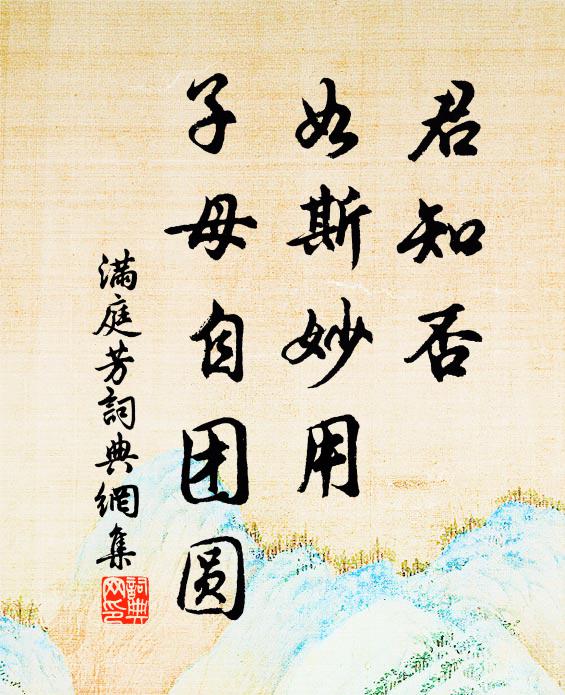 君知否
如斯妙用
子母自团圆
滿庭芳詞典網集
詞典网印